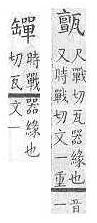 尺戰切瓦器緣也
又時戰切文一重
一音
一
時戰
切瓦
器緣也
文一